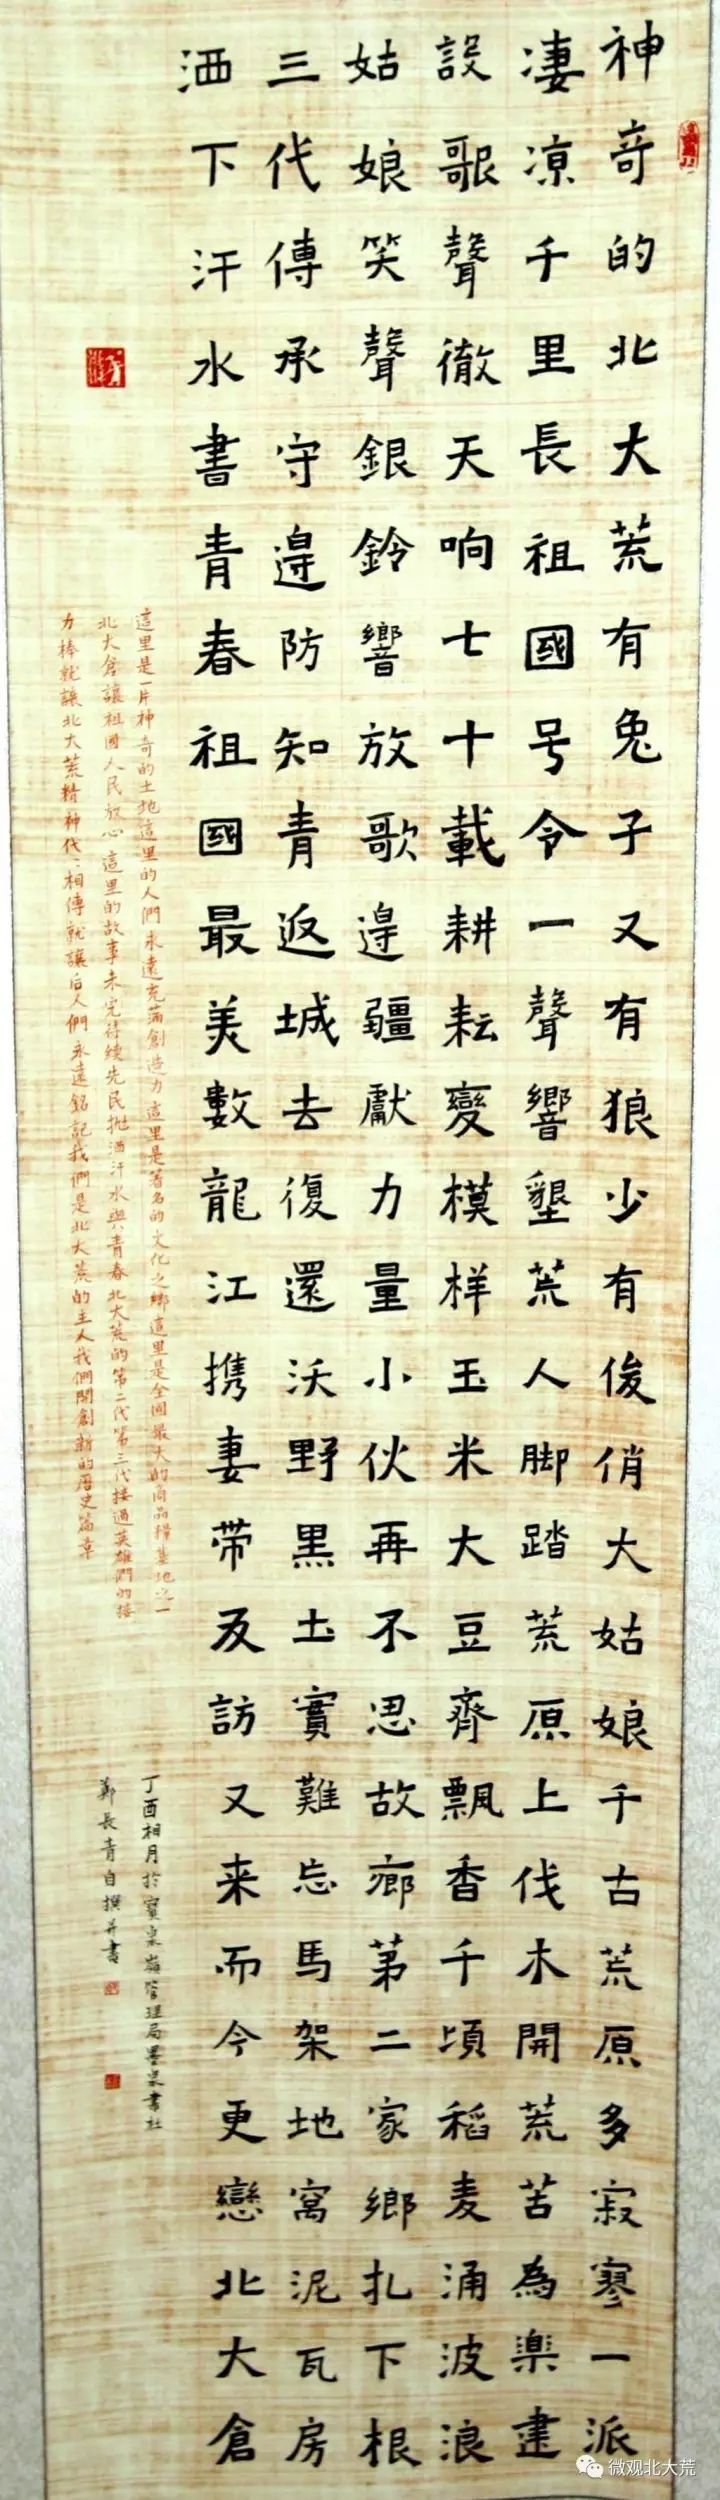 神奇的北大荒有兔子又有狼少有俊俏大姑娘千古荒原多寂寥一派
凄凉千里長祖國号令一聲響墾荒人脚踏荒原上伐木開荒苦為樂建
設歌聲徹天响七十載耕耘變模样玉米大豆齊飄香千頃稻麦涌波浪
姑娘笑聲銀鈴響放歌邊疆獻力量小伙再不思故鄉第二家鄉扎下根
三代傳承守邊防知青返城去復還沃野黑土實難忘馬架地窩泥瓦房
洒下汗水書青春祖國最美數龍江携妻带友訪又来而今更戀北大倉
這里是一片神奇的土地這里的人們永遠充滿創造力這里是著名的文化之鄉這里是全國最大的商品糧基地之一
北大倉讓祖國人民放心這里的故事未完待續先民抛洒汗水與青春北大荒的第二代第三代接過英雄們的接
力棒就讓北大荒精神代:相傳就讓后人們永遠銘記我們是北大荒的主人我們開創新的歷史篇章
丁酉相月於寶泉嶺管理局墨泉書社
鄭長青自撰并書
微观北大荒